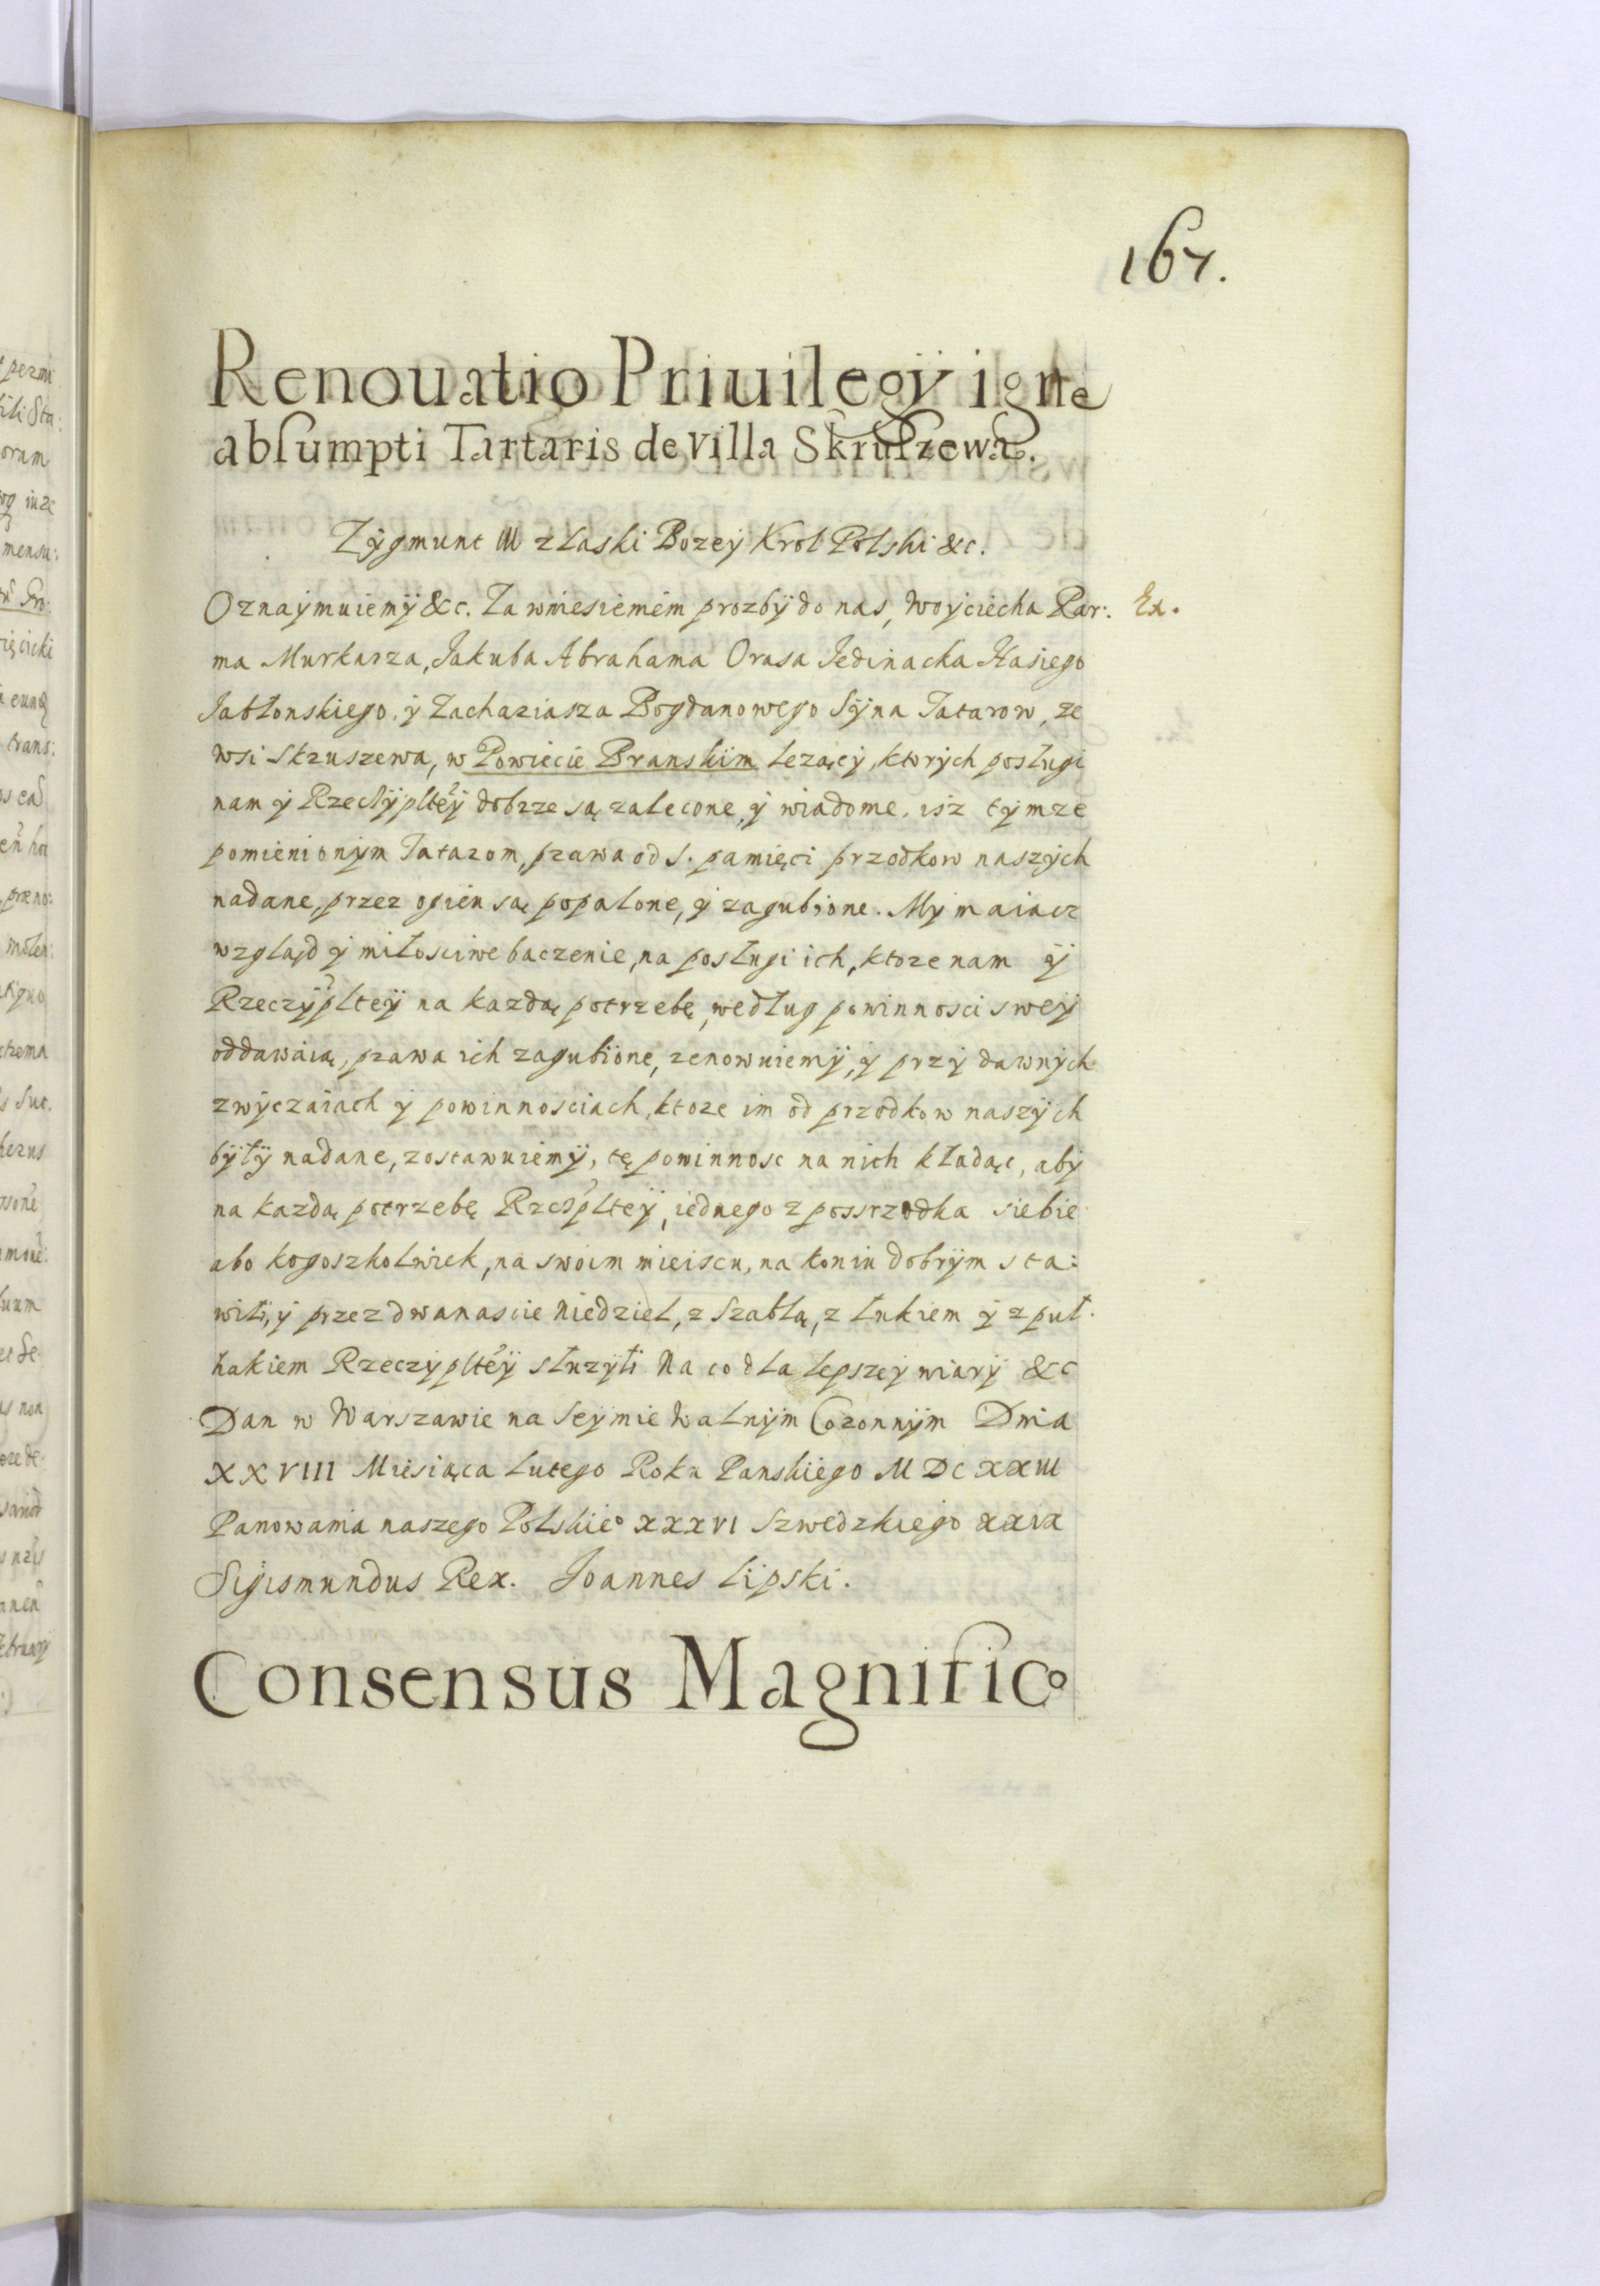 167.
Renouatio Priuilegÿ igne
absumpti Tartaris de Villa Skruszewa.
Zygmunt III z Laski Bozey Krol Polski &c.
Oznaymuiemÿ &c. Za wniesieniem prozbÿ do nas, Woyciecha Par:
Ex.
ma Murkarza, Jakuba Abrahama Orasa Jedinacka Hasiego
Jabłonskiego, ÿ Zachariasza Bogdanowego Sÿna Tatarow, ze
wsi Skruszewa, w Powiecie Branskim lezącÿ, ktorÿch posługi
nam ÿ Rzeczÿpltey dobrze są zalecone, ÿ wiadome, isz tÿmze
pomienionÿm Tatarom, prawa od s. pamięci przodkow naszÿch
nadane, przez ogien są popalone, ÿ zagubione. My maiacz
wzgląd ÿ miłosciwe baczenie, na posługi ich, ktore nam ÿ
Rzeczÿpltey na kazdą potrzebę, według powinnosci swey
oddawaią, prawa ich zagubione, renowuiemÿ, ÿ przÿ dawnÿch
zwÿczaiach ÿ powinnosciach, ktore im od przodkow naszÿch
bÿłÿ nadane, zostawuiemÿ, tę powinnosc na nich kładąc, abÿ
na kazdą potrzebę Rzczpltey, iednego z possrzodka siebie
abo kogoszkolwiek, na swoim mieiscu, na koniu dobrÿm sta:
wili, ÿ przez dwanascie niedziel, z Szablą, z łukiem ÿ z puł
hakiem Rzeczÿpltey słuzÿli Na co dla lepszeÿ wiarÿ &c
Dan w Warszawie na Seÿmie Walnÿm Coronnÿm Dnia
XXVIII Miesiąca Lutego Roku Panskiego MDCXXIII
Panowania naszego Polskieo XXXVI Szwedzkiego XXIX
Sigismundus Rex. Joannes Lipski.
Consensus Magnifico